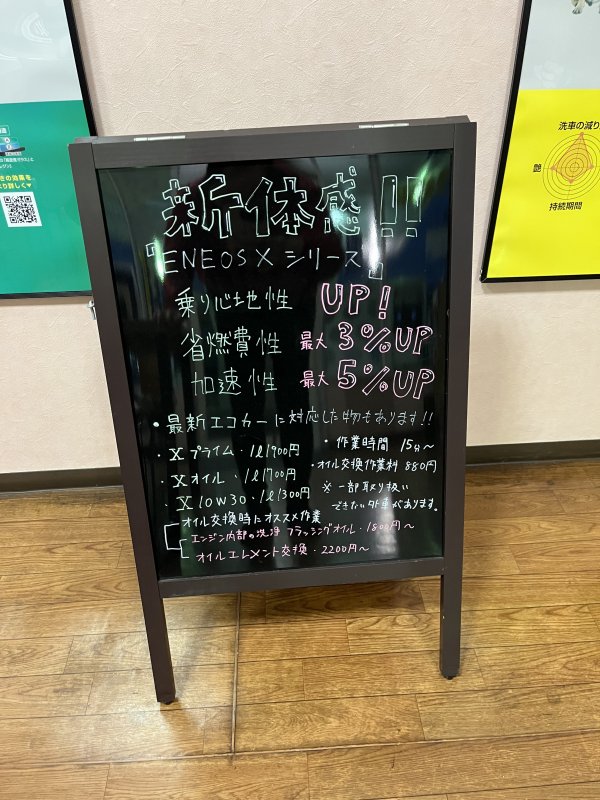 新体感!!
『ENEOS X シリーズ』
乗り心地性 UP!
省燃費性 最大 3%UP
加速性 最大 5%UP
・最新エコカーに対応した物もあります!!
・Xプライム・1ℓ1900円
・Xオイル・1ℓ1700円
・X 10W30・1ℓ1300円
・作業時間 15分〜
・オイル交換作業料 880円
※一部取り扱い
できない外車があります。
オイル交換時にオススメ作業
エンジン内部の洗浄 フラッシングオイル・1800円〜
オイルエレメント交換・2200円〜
洗車の減り
艶
持続期間
きの効果を
り詳しく